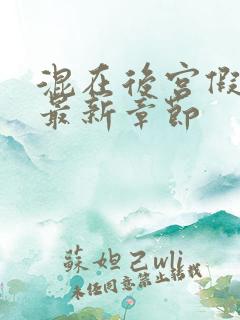 混在後宮假
最新章節
蘇妲己wli
未经同意禁止转载